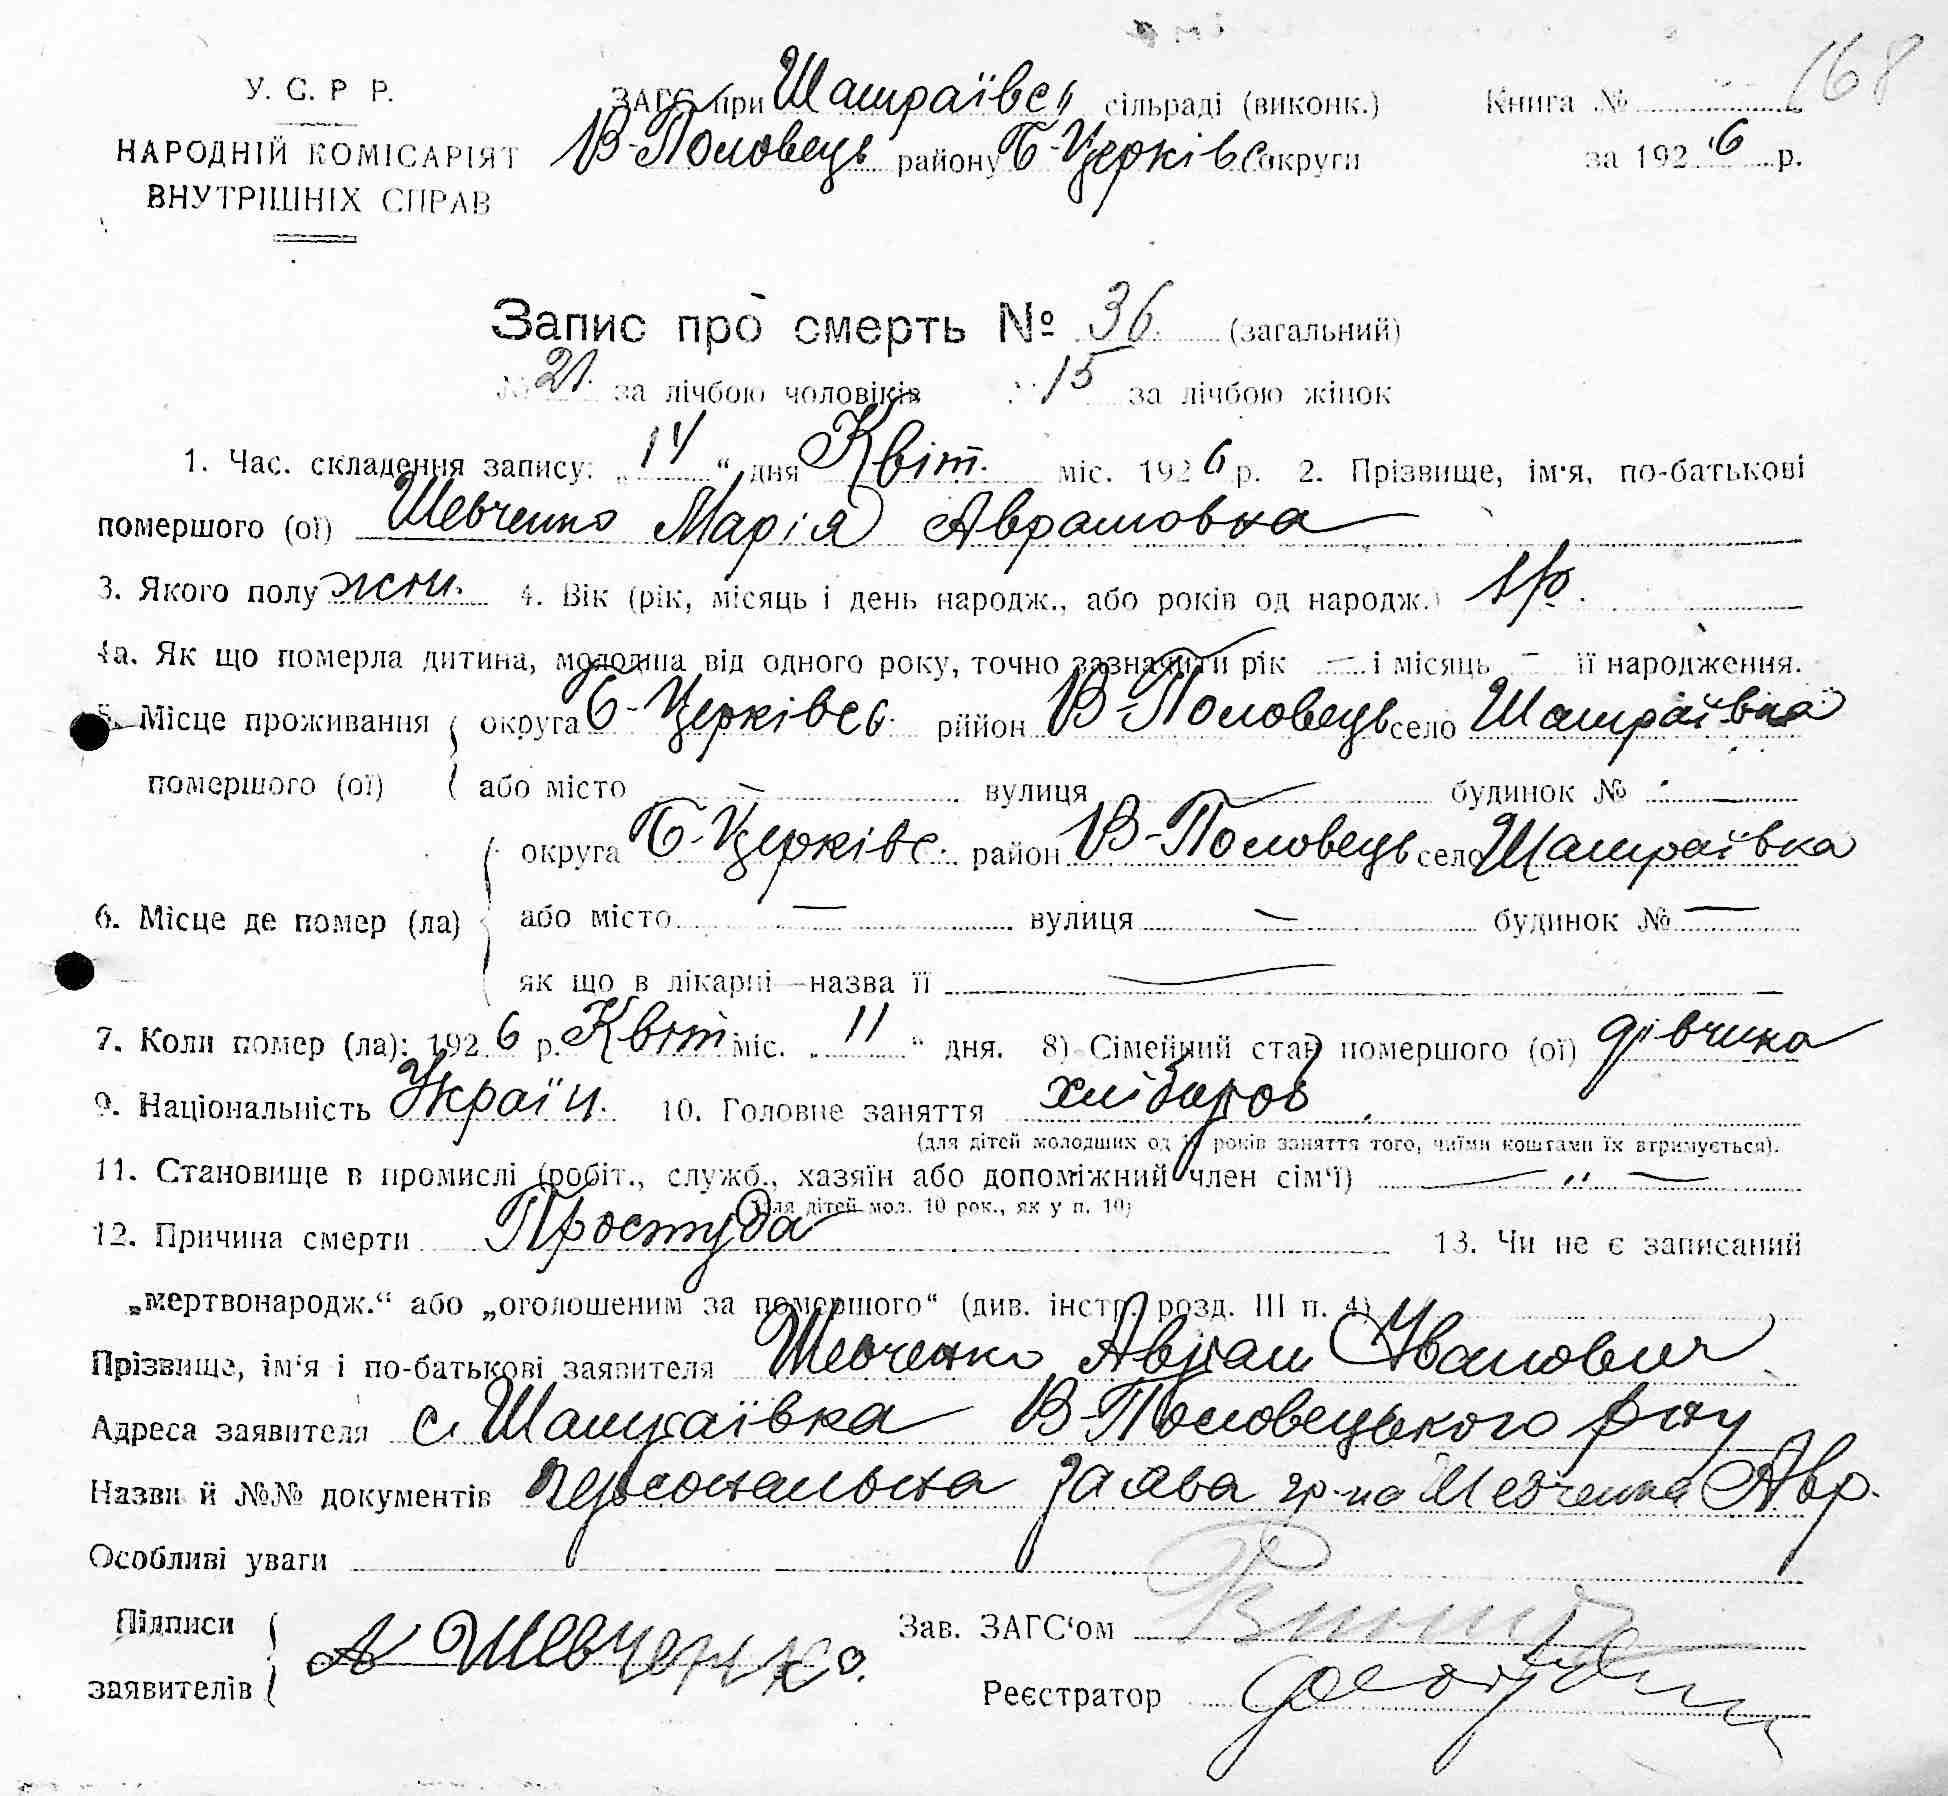 168
У. С. Р Р.
НАРОДНІЙ КОМІСАРІЯТ
ВНУТРІШНІХ СПРАВ
ЗАГС при Шамраївсь сільраді (виконк.) Книга №
В-Половець району Б-Церківс округи за 1926 р.
Запис про смерть № 36 (загальний)
№ 21. за лічбою чоловіків № 15 за лічбою жінок
1. Час. складення запису: „14“ дня Квіт. міс. 1926 р. 2. Прізвище, ім'я, по-батькові
помершого (ої) Шевченко Марія Аврамовна
3. Якого полу жен. 4. Вік (рік, місяць і день народж., або років од народж.) 1 р.
4а. Як що померла дитина, молодша від одного року, точно зазначити рік — і місяць — її народження.
5. Місце проживання округа Б-Церківсь. рййон В-Половець село Шамраївка
помершого (ої) або місто — вулиця — будинок № —
округа Б-Церківс. район В-Половець село Шамраївка
6. Місце де помер (ла) або місто — вулиця — будинок № —
як що в лікарні—назва її —
7. Коли помер (ла): 1926 р. Квіт міс. „11“ дня. 8) Сімейний стан помершого (ої) дівчина
9. Національність Україн. 10. Головне заняття хлібороб
(для дітей молодших од 10 років заняття того, чиїми коштами їх втримується).
11. Становище в промислі (робіт., служб., хазяїн або допоміжний член сім'ї) — „ —
(для дітей мол. 10 рок., як у п. 10)
12. Причина смерти Простуда 13. Чи не є записаний
„мертвонародж.“ або „оголошеним за помершого“ (див. інстр. розд. III п. 4)
Прізвище, ім'я і по-батькові заявителя Шевченко Аврам Іванович
Адреса заявителя с. Шамраївка В-Половецького р-ну
Назви й №№ документів персональна заява гр-на Шевченка Авр.
Особливі уваги
Підписи
заявителів А Шевченко.
Зав. ЗАГС'ом
Реєстратор